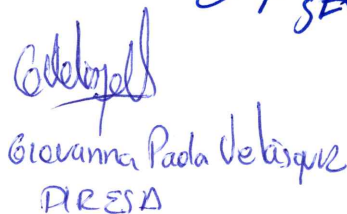 Giovanna Paola Velásquez
DIRESA